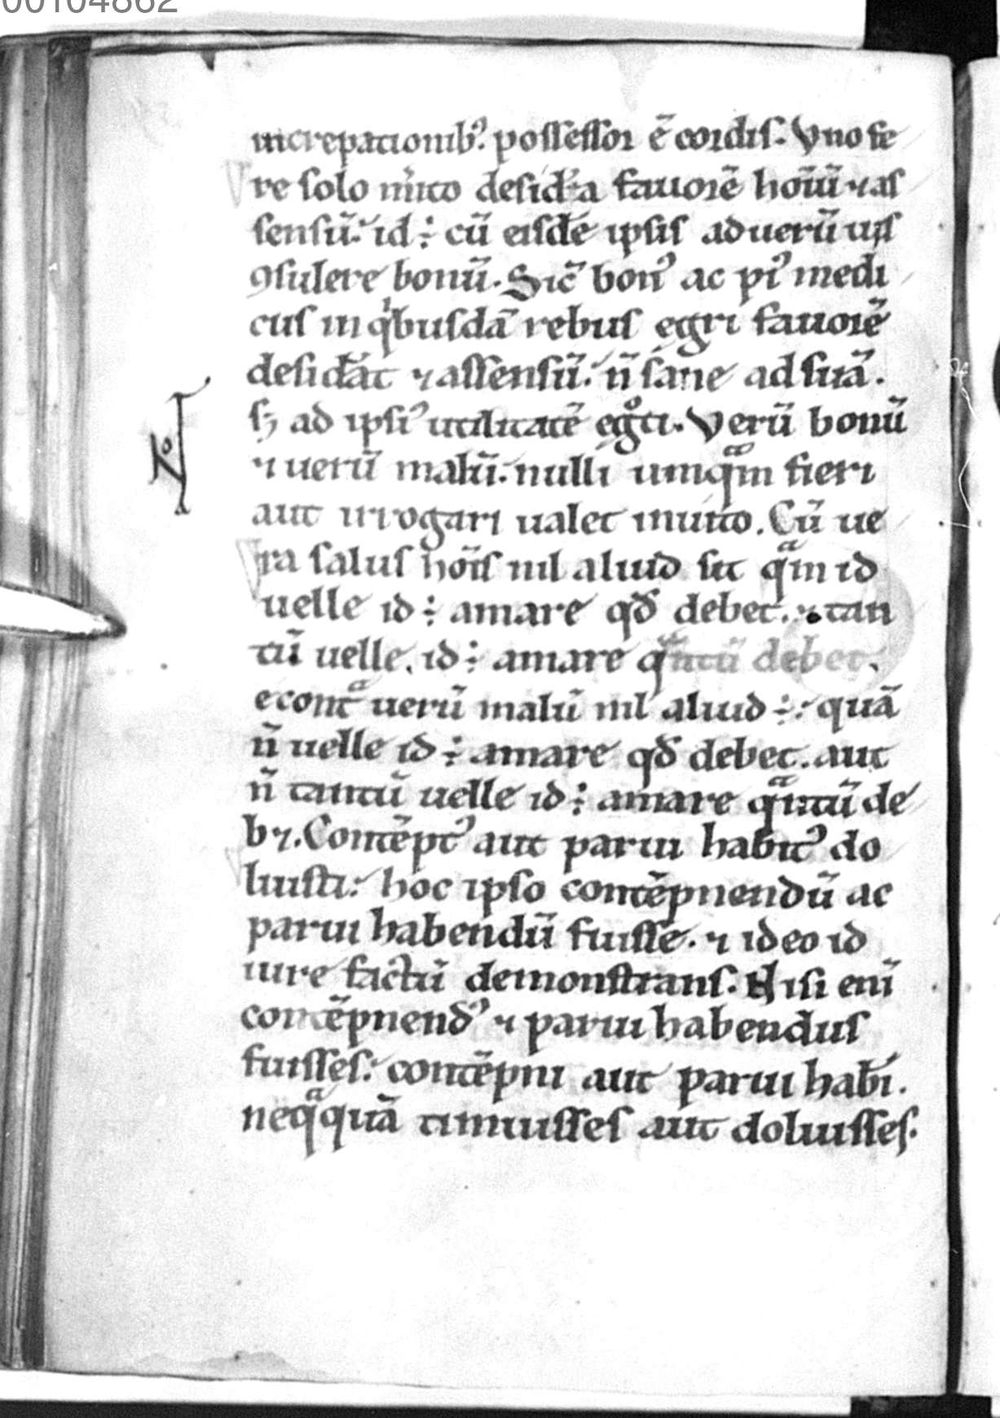 00104862
increpationib᷒. possessor ē cordis. Vno fe
re solo mͥito desid̾a fauorē hoīū ⁊ as
sensū. id ÷ cū eisdē ipsis ad uerū uƚt
ꝯsulere bonū. Sic̄ bon᷒ ac pi᷒ medi
cus in qͥbusdā rebus egri fauorē
desid̾at ⁊ assensū. n̄ sane ad suā.
sꝫ ad ipsi᷒ utilitatē egͦti. Verū bonū
⁊ uerū malū. nulli umqͣm fieri
aut irrogari ualet inuito. Cū ue
ra salus hoīs nil aliud sit qͣm id
uelle id ÷ amare qđ debet. ⁊ tan
tū uelle. id ÷ amare qͣntū debet.
econtͣ uerū malū nil aliud ÷ quā
n̄ uelle id ÷ amare qđ debet. aut
n̄ tantū uelle id ÷ amare qͣntū de
b⁊. Contēpt᷒ aut parui habit᷒ do
luisti. hoc ipso contēpnendū ac
parui habendū fuisse. ⁊ ideo id
iure factū demonstrans. Nisi enī
contēpnend᷒ ⁊ parui habendus
fuisses. contēpni aut parui habi̅.
neqͣquā timuisses aut doluisses.